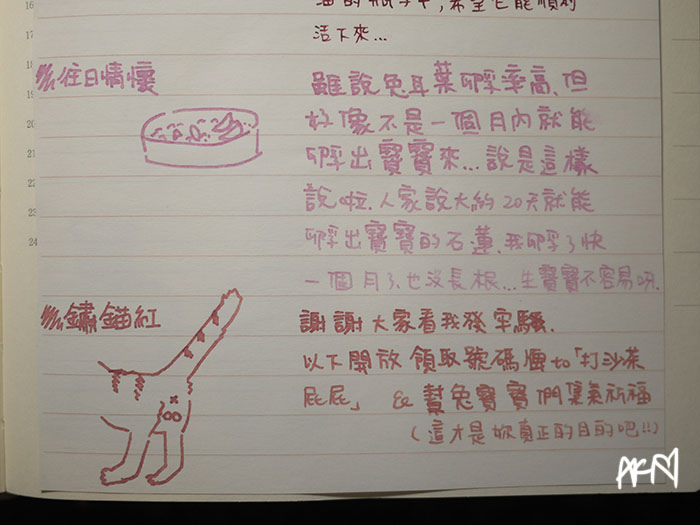 活下來…
往日情懷
雖說兔耳葉孵率高，但
好像不是一個月內就能
孵出寶寶來…說是這樣
說啦，人家說大約20天就能
孵出寶寶的石蓮，我孵了快
一個月了，也沒長根…生寶寶不容易呀。
鏽錨紅
謝謝大家看我發牢騷，
以下開放領取號碼牌to「打沙茶
屁屁」 & 幫兔寶寶們集氣祈福
(這才是妳真正的目的吧!!)
16
17
18
19
20
21
22
23
24